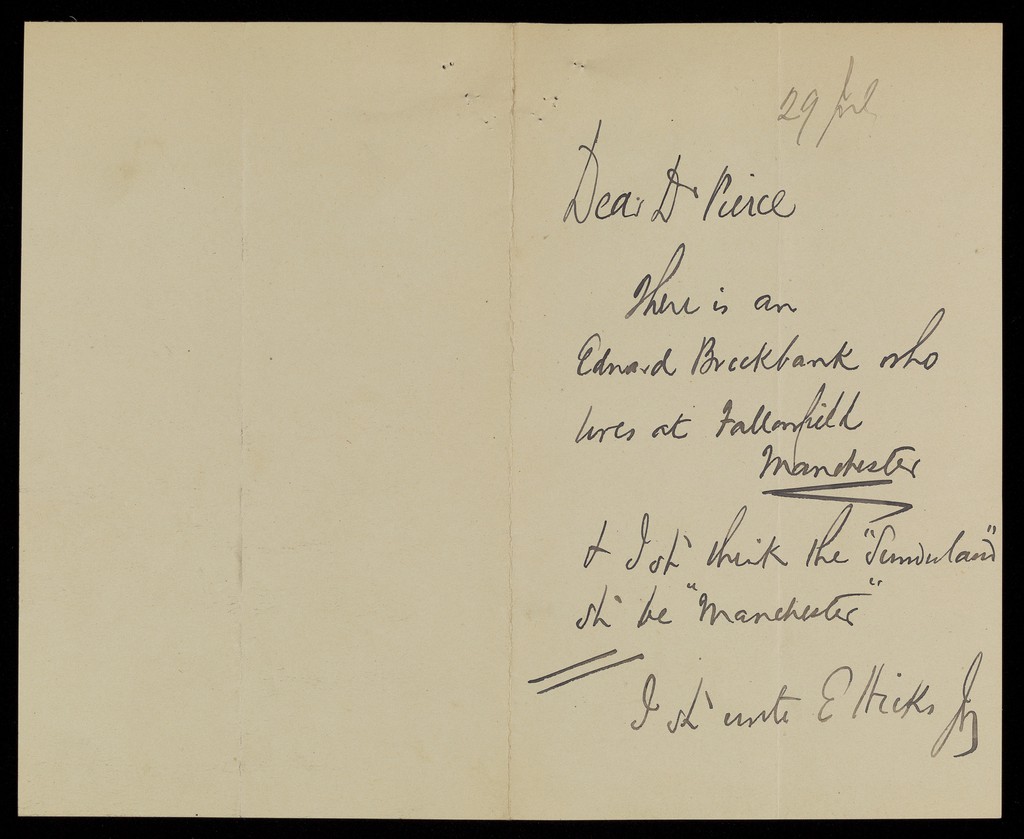 29 Jul
Dear Dr Pierce
There is an
Edward Brockbank who
lives at Fallowfield
Manchester
& I shd think the "Sunderland"
shd be "Manchester"
I shd write E Hicks Jr